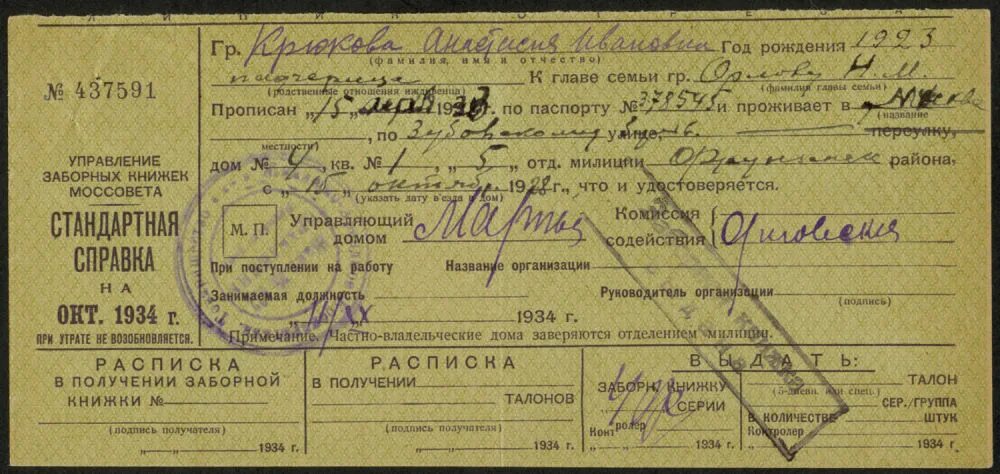 № 437591
УПРАВЛЕНИЕ
ЗАБОРНЫХ КНИЖЕК
МОССОВЕТА
СТАНДАРТНАЯ
СПРАВКА
НА
ОКТ. 1934 г.
ПРИ УТРАТЕ НЕ ВОЗОБНОВЛЯЕТСЯ.
Гр. Крюкова Анастасия Ивановна Год рождения 1923
(фамилия, имя и отчество)
падчерица К главе семьи гр. Орлову Н. М.
(родственные отношения иждивенца) (фамилия главы семьи)
Прописан „15 193 по паспорту № 378545 и проживает в
(название
, по Зубовскому переулку,
местности)
дом № 4, кв. № 1, „5„ отд. милиции района,
с „15„ октября 1928 г., что и удостоверяется.
(указать дату в'езда в дом)
М. П.
Управляющий
домом
Комиссия
содействия
При поступлении на работу Название организации
Занимаемая должность Руководитель организации
(подпись)
1934 г.
Примечание. Частно-владельческие дома заверяются отделением милиции.
РАСПИСКА
В ПОЛУЧЕНИИ ЗАБОРНОЙ
КНИЖКИ №
(подпись получателя)
„ „ 1934 г.
РАСПИСКА
В ПОЛУЧЕНИИ
ТАЛОНОВ
(подпись получателя)
„ „ 1934 г.
ВЫДАТЬ:
ЗАБОРН. КНИЖКУ
СЕРИИ
Контролер
„ „ 1934 г.
ТАЛОН
(5-дневн. или спец.)
СЕР./ГРУППА
В КОЛИЧЕСТВЕ ШТУК
Контролер
„ „ 1934 г.